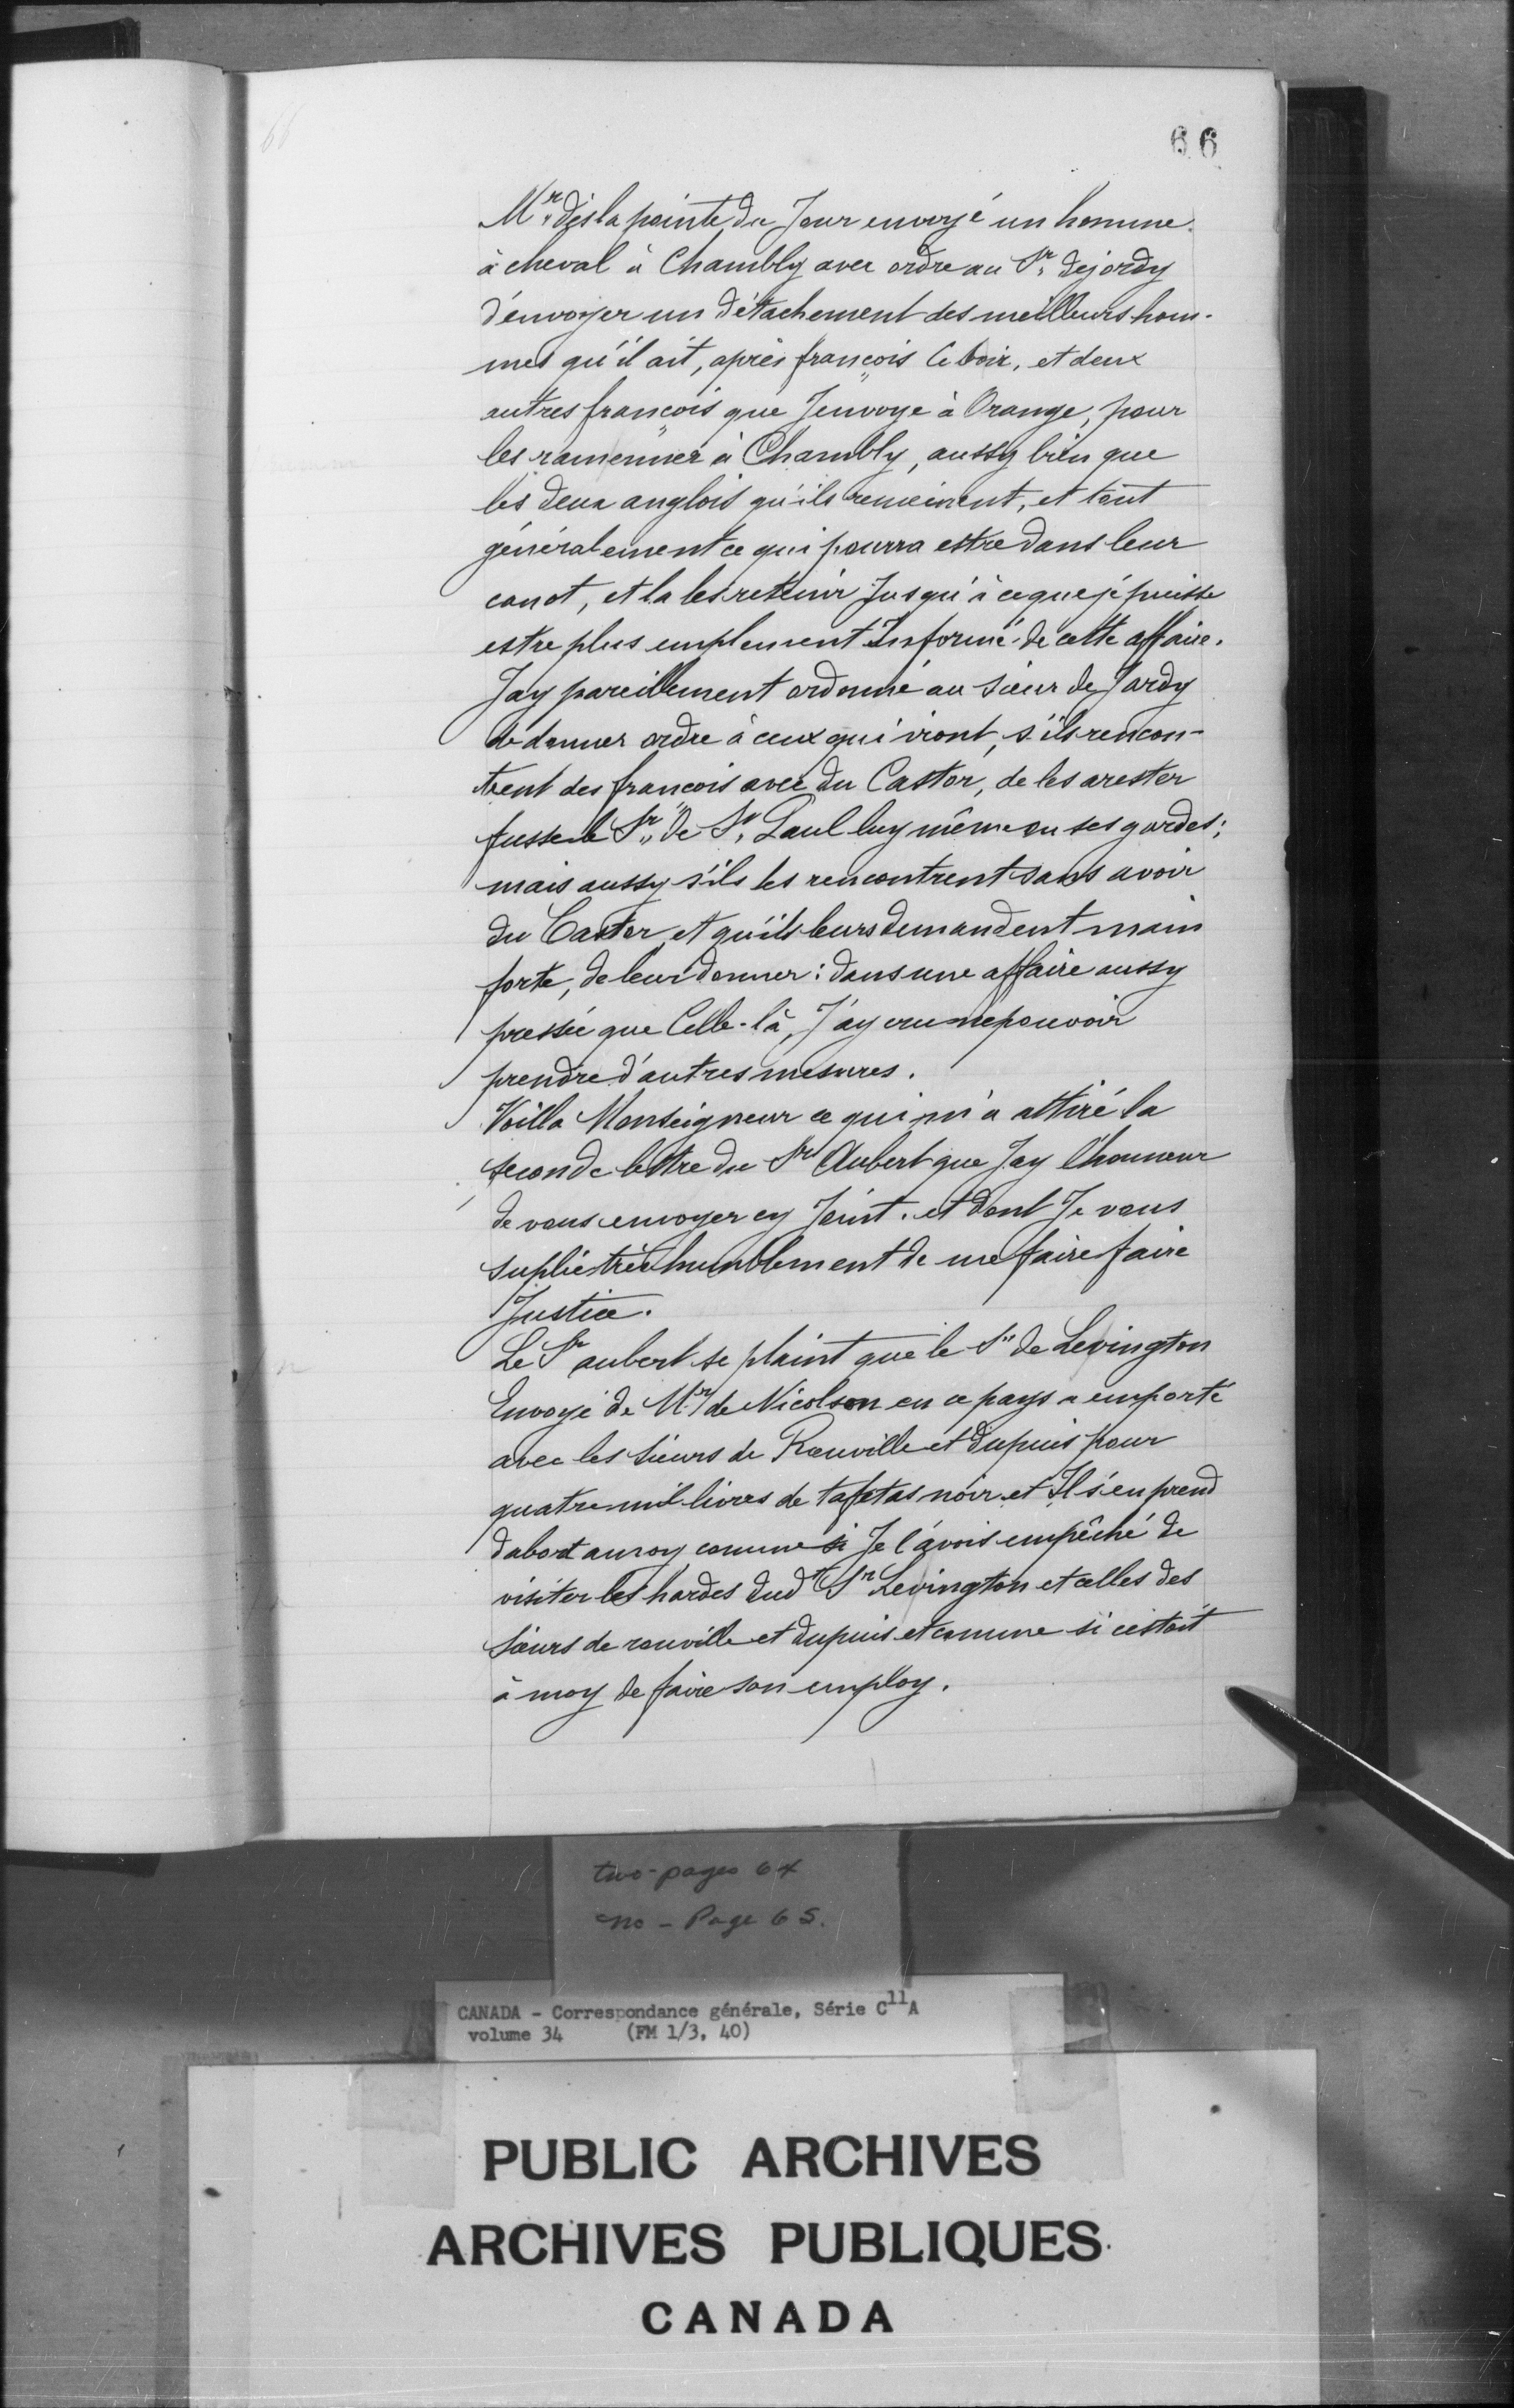 66
66
Mr dès la pointe du Jour envoyé un homme
à cheval à Chambly avec ordre au Sr dejordy
d'envoyer un détachement des meilleurs hom-
mes qu'il ait, après françois le boir, et deux
autres françois que J'envoye à Orange, pour
les ramenner à Chambly, aussy bien que
les deux anglois qu'ils remeinent, et tout
généralement ce qui pourra estre dans leur
canot, et la les retenir Jusqu'à ce que jé puisse
estre plus emplement Informé de cette affaire.
Jay pareillement ordonné au sieur de Jordy
de donner ordre à ceux qui iront, s'ils rencon-
trent des francois avec du Castor, de les arester
fusse le Sr de St Paul luy même ou ses gardes;
mais aussy s'ils les rencontrent sans avoir
du Castor et qu'ils leurs demandent main
forte, de leur donner: dans une affaire aussy
pressée que Celle-là, J'ay cru ne pouvoir
prendre d'autres mesures.
Voilla Monseigneur ce qui m'a attiré la
seconde lettre du Sr Aubert que Jay l'honneur
de vous envoyer cy Joint. et dont Je vous
suplie très humblement de me faire faire
Justice.
Le Sr aubert se plaint que le Sr de Levington
Envoyé de Mr de Nicolson en ce pays a emporté
avec les sieurs de Rouville et dupuis pour
quatre mil livres de tafetas noir et Il s'en prend
dabord au roy comme si Je l'avois empêché de
visiter les hardes dudt Sr Levington et celles des
sieurs de rouville et dupuis et comme si cestoit
à moy de faire son employ.
two-pages 64
no - Page 65.
CANADA - Correspondance générale, Série C11A
volume 34 (FM 1/3, 40)
PUBLIC ARCHIVES
ARCHIVES PUBLIQUES
CANADA